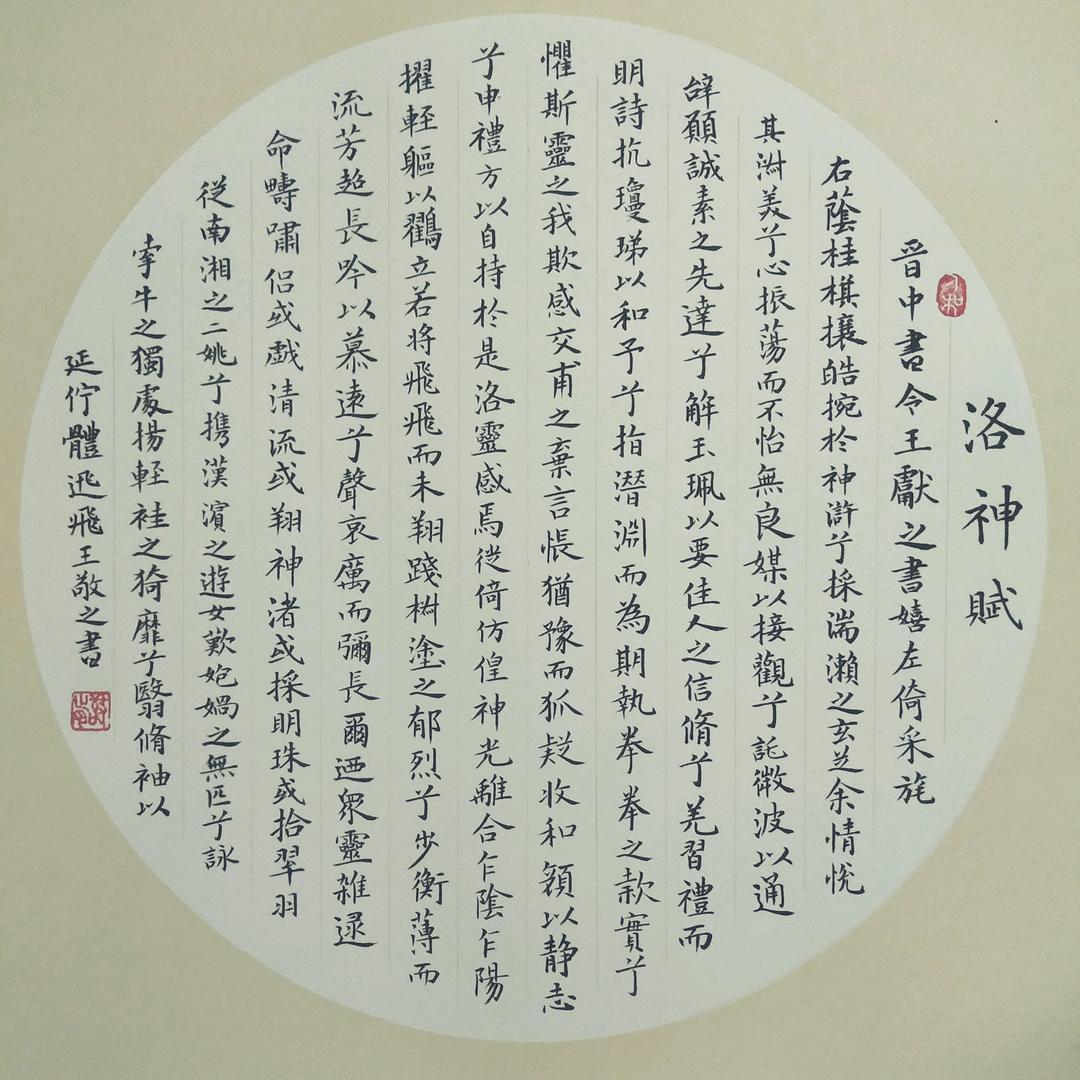 洛神賦
晉中書令王獻之書嬉左倚采旄
右蔭桂棋攘皓捥於神滸兮採湍瀨之玄芝余情悅
其淑美兮心振蕩而不怡無良媒以接觀兮託微波以通
辭願誠素之先達兮解玉珮以要佳人之信脩兮羌習禮而
明詩抗瓊珶以和予兮指潛淵而為期執拳拳之款實兮
懼斯靈之我欺感交甫之棄言悵猶豫而狐疑收和顏以靜志
兮申禮方以自持於是洛靈感焉徙倚仿偟神光離合乍陰乍陽
擢輕軀以鶴立若將飛飛而未翔踐椒塗之郁烈兮步衡薄而
流芳超長吟以慕遠兮聲哀厲而彌長爾迺眾靈雜遝
命疇嘯侶或戲清流或翔神渚或採明珠或拾翠羽
從南湘之二姚兮攜漢濱之遊女歎匏媧之無匹兮詠
牽牛之獨處揚輕袿之猗靡兮翳脩袖以
延佇體迅飛王敬之書